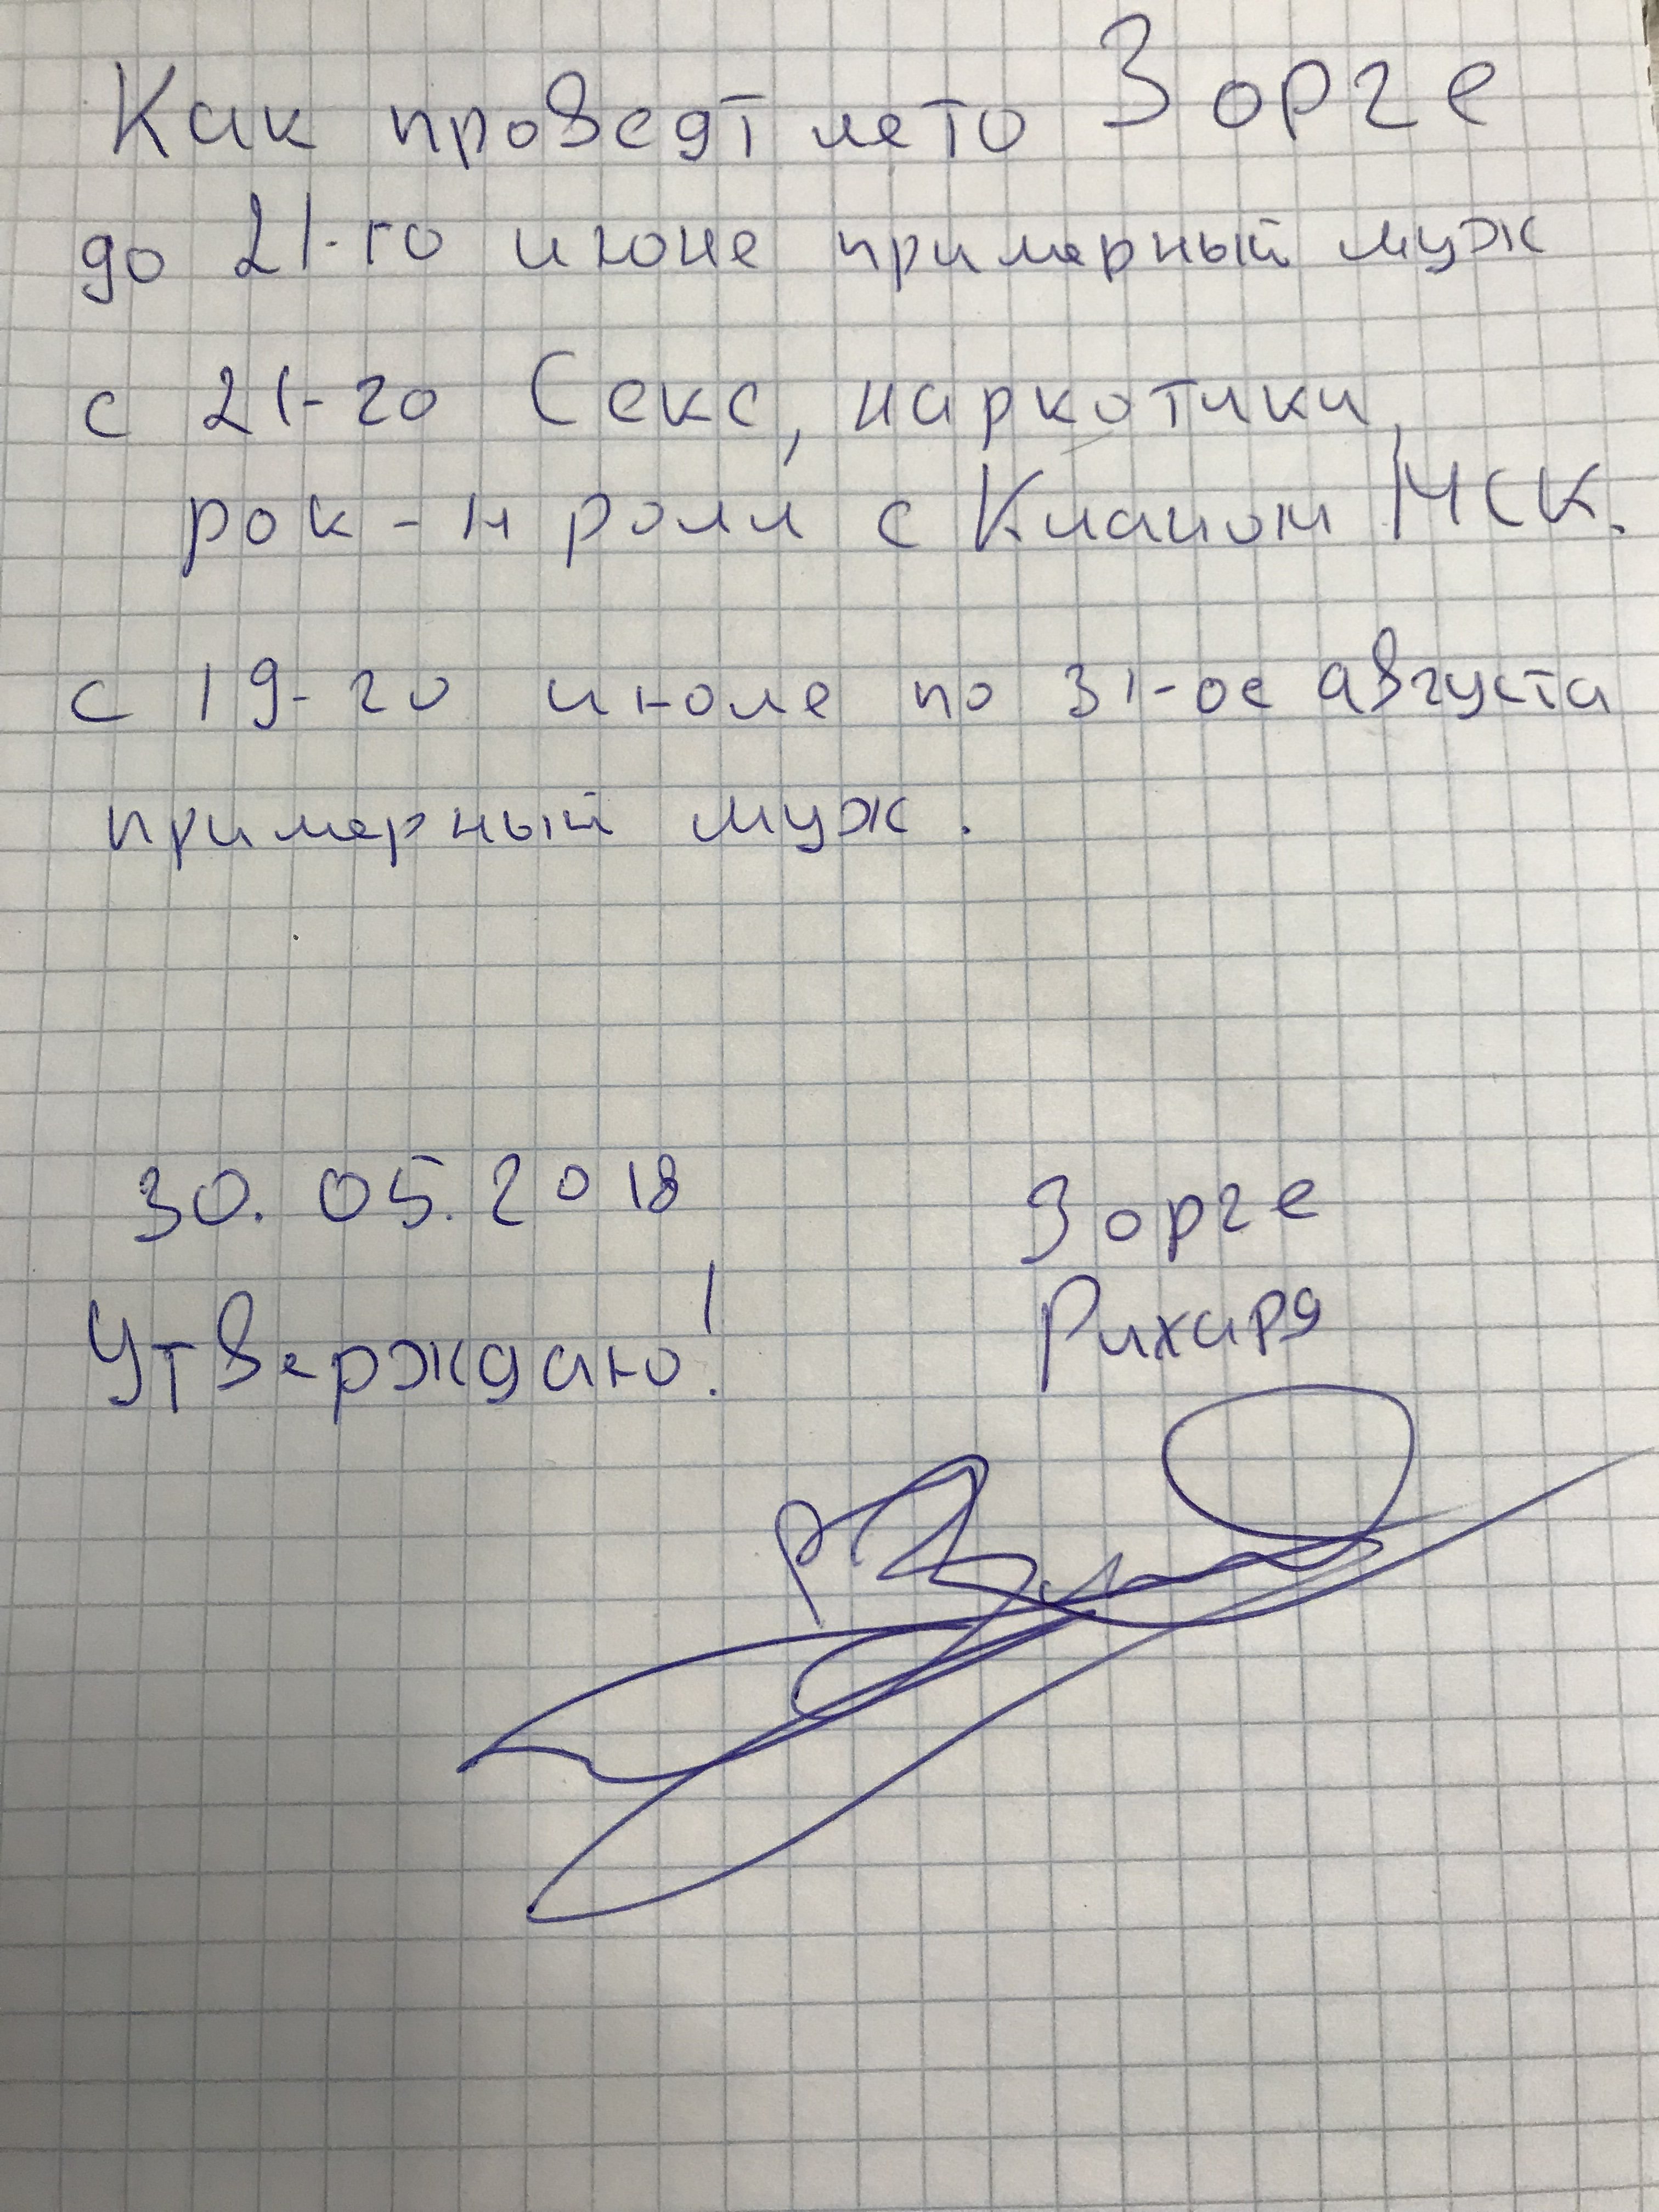 Как проведт лето Зорге
до 21-го июне примерный муж
с 21-го Секс, наркотики,
рок-н ролл с Кланом МСК.
с 19-го июле по 31-ое августа
примерный муж.
30.05.2018
Зорге
Утверждаю!
Рихард